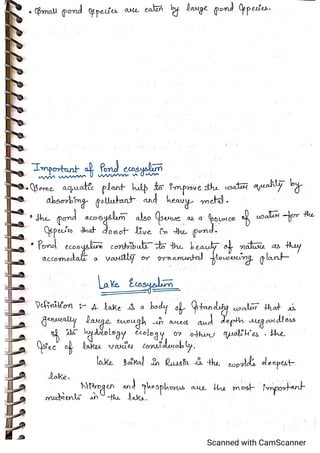 • Small pond species are eaten by large pond species.
Important of Pond ecosystem
• Some aquatic plant help to improve the water quality by
absorbing pollutant and heavy metal.
• the pond acosystem also serve as a source of water for the
species that donot live in the pond.
• Pond ecosystem contribute to the beauty of nature as they
accomodate a variety or ornamental flowering plant
Lake Ecosystem
Definition :- A lake is a body of standing water that is
generally large enough in area and depth regardless
of its hydrology ecology or other qualities. The
size of lakes varies considerably.
lake Baikal in Russia is the world's deepest
lake.
Nitrogen and phosphorus are the most important
nutrients in the lake.
Scanned with CamScanner